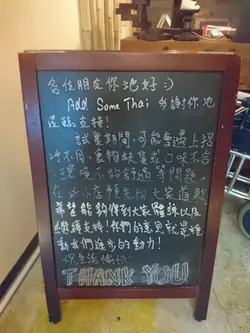 各位朋友你地好 :)
Add Some Thai 多謝你地
蒞臨支持!
試業期間,可能會遇上招
呼不周、食物缺售或口味不合
、環境不夠舒適等問題,
在此小店預先向大家道歉
希望能夠得到大家體諒以及
繼續支持!你們的意見就是推
動我們進步的動力!
祝生活愉快
THANK YOU